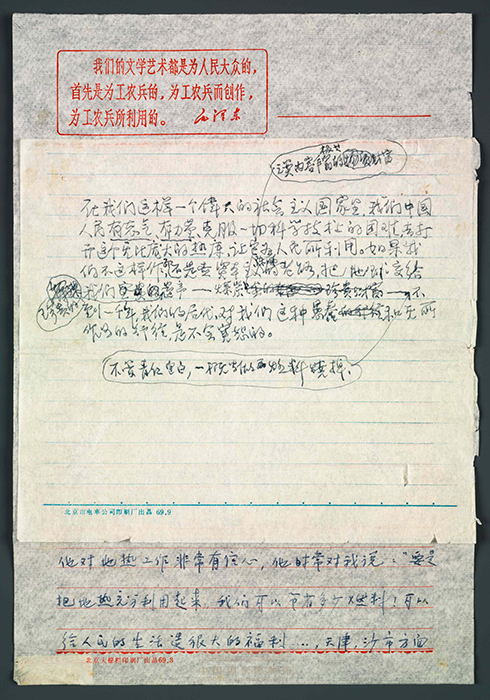 我们的文学艺术都是为人民大众的,
首先是为工农兵的,为工农兵而创作,
为工农兵所利用的。 毛泽东
在我们这样一个伟大的社会主义国家里,我们中国
人民有志气有力量克服一切科学技术上的困难去打
开这个无比庞大的热库,让它为人民所利用。如果我
们不这样作,老路,把地球交给
我们——不
我们的后代,对我们这种愚蠢和无所
作为的行径是不会宽恕的。
不管青红皂白,一概当作燃料烧掉,
北京市电车公司印刷厂出品 69.9
他对地热工作非常有信心,他时常对我说:“要是
把地热充分利用起来,我们可以节省多少燃料!可以
给人民的生活造很大的福利…,天津,沙市方面
北京大栅栏印刷厂出品69.8